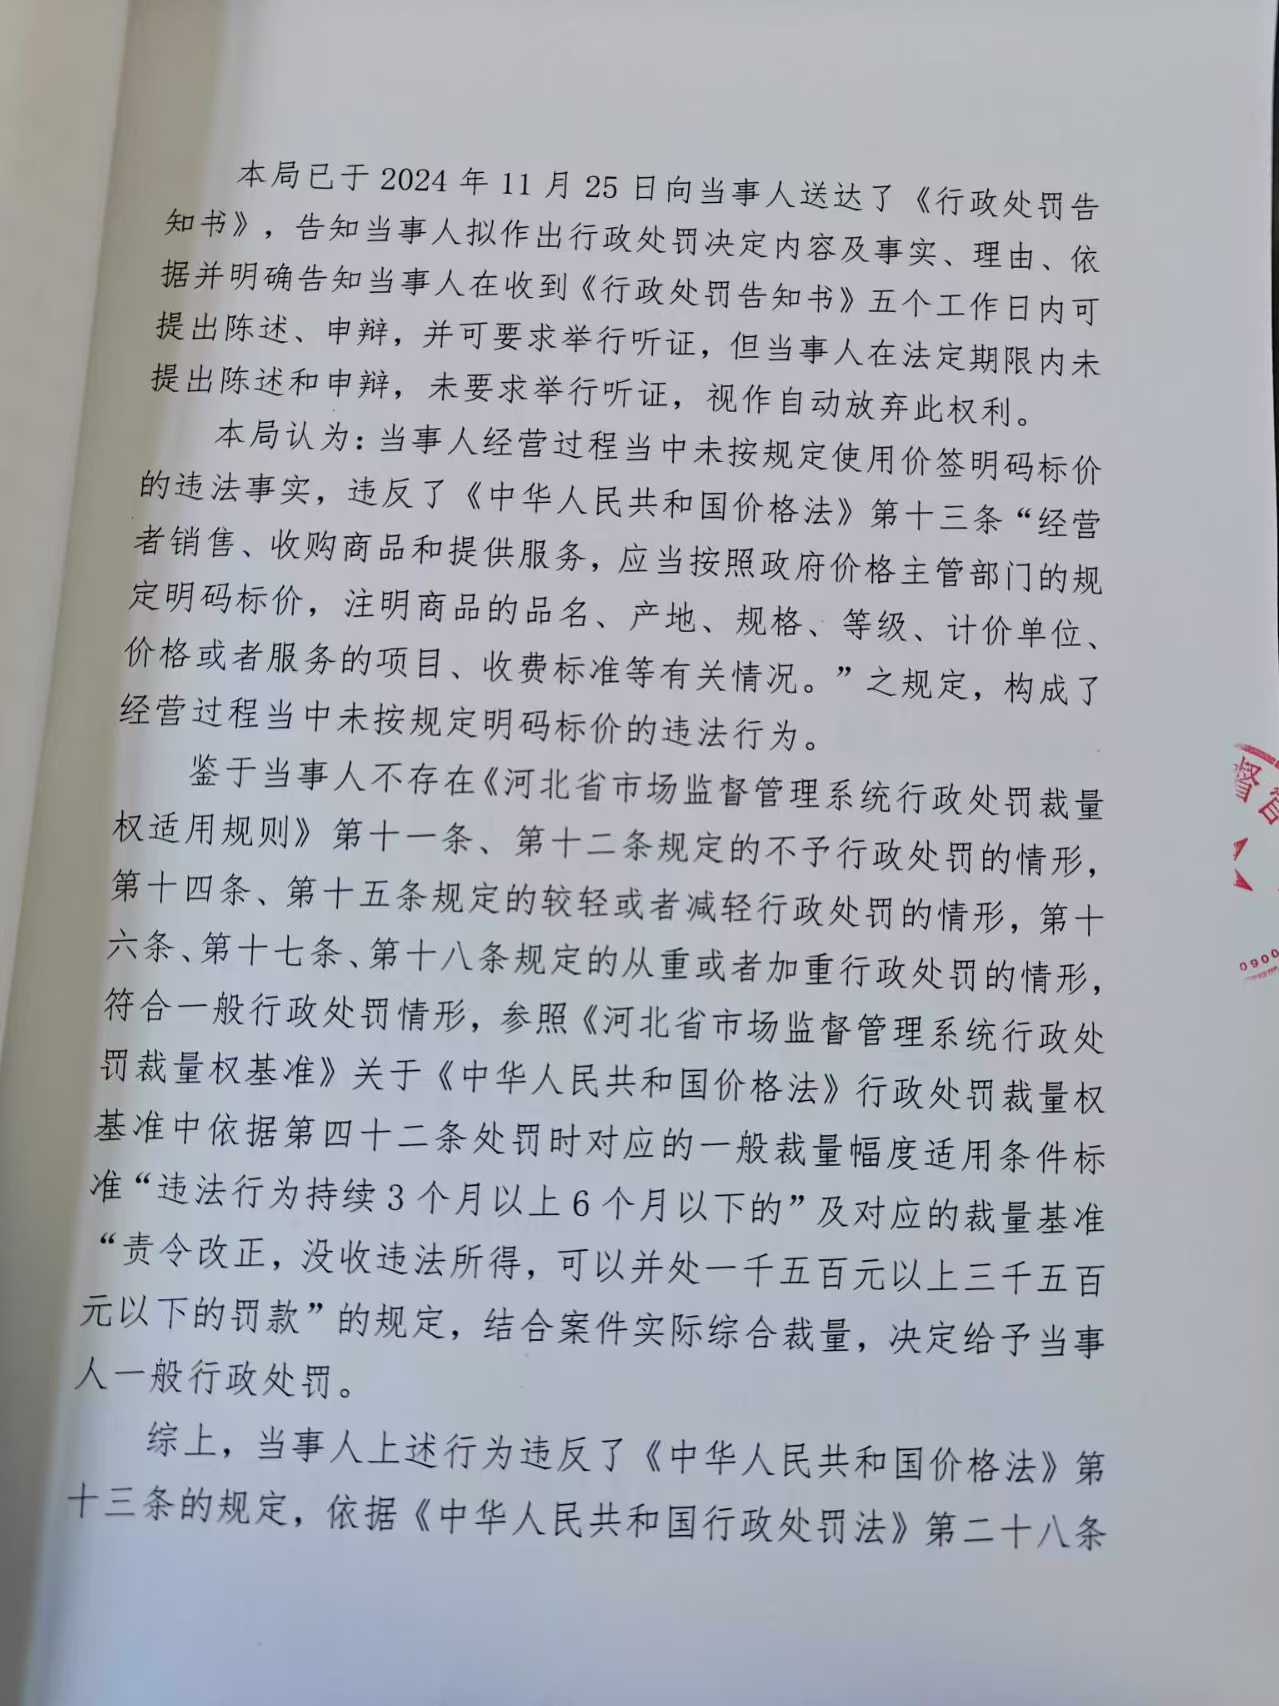 本局已于 2024 年 11 月 25 日向当事人送达了《行政处罚告
知书》，告知当事人拟作出行政处罚决定内容及事实、理由、依
据并明确告知当事人在收到《行政处罚告知书》五个工作日内可
提出陈述、申辩，并可要求举行听证，但当事人在法定期限内未
提出陈述和申辩，未要求举行听证，视作自动放弃此权利。
本局认为：当事人经营过程当中未按规定使用价签明码标价
的违法事实，违反了《中华人民共和国价格法》第十三条“经营
者销售、收购商品和提供服务，应当按照政府价格主管部门的规
定明码标价，注明商品的品名、产地、规格、等级、计价单位、
价格或者服务的项目、收费标准等有关情况。”之规定，构成了
经营过程当中未按规定明码标价的违法行为。
鉴于当事人不存在《河北省市场监督管理系统行政处罚裁量
权适用规则》第十一条、第十二条规定的不予行政处罚的情形，
第十四条、第十五条规定的较轻或者减轻行政处罚的情形，第十
六条、第十七条、第十八条规定的从重或者加重行政处罚的情形，
符合一般行政处罚情形，参照《河北省市场监督管理系统行政处
罚裁量权基准》关于《中华人民共和国价格法》行政处罚裁量权
基准中依据第四十二条处罚时对应的一般裁量幅度适用条件标
准“违法行为持续 3 个月以上 6 个月以下的”及对应的裁量基准
“责令改正，没收违法所得，可以并处一千五百元以上三千五百
元以下的罚款”的规定，结合案件实际综合裁量，决定给予当事
人一般行政处罚。
综上，当事人上述行为违反了《中华人民共和国价格法》第
十三条的规定，依据《中华人民共和国行政处罚法》第二十八条
督管
0900